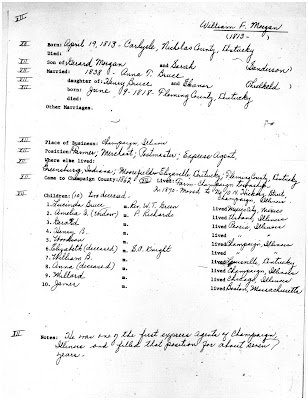 William F. Morgan
(1813- )
Born: April 19, 1813 - Carlysle, Nicholas County, Kentucky
Died:
Son of Gerard Morgan and Sarah (Sanderson)
Married: 1838 - Anna T. Bruce
daughter of: Henry Bruce and Eleanor (Threlkeld)
born: June 1818 - Fleming County, Kentucky
died:
Other Marriages.
Place of Business: Champaign, Illinois
Position: Farmer, Merchant, Postmaster, Express Agent,
Where else lived:
Greensburg, Indiana; Moorefield, Kentucky, Fleming County, Kentucky
Came to Champaign County: Lived: Farm - Champaign Township
In 1870 - Moved to No. 10 N. Hickory Street
Champaign, Illinois
Children: (10) Two deceased.
1. Lucinda Bruce m. Rev. W. T. Green lived
2. Amelia B. (widow) m. P. Richards lived Urbana, Illinois
3. Gerard m. lived Illinois
4. Henry B. m. lived
5. Woodson m. lived Champaign, Illinois
6. Elizabeth (deceased) m. Knight lived
7. William B. m. lived Kentucky
8. Anna (deceased) m. lived Champaign, Illinois
9. Willard m. lived Chicago, Illinois
10. James m. lived Boston, Massachusetts
Notes: He was one of the first express agents of Champaign,
Illinois and filled that position for about seven
years.